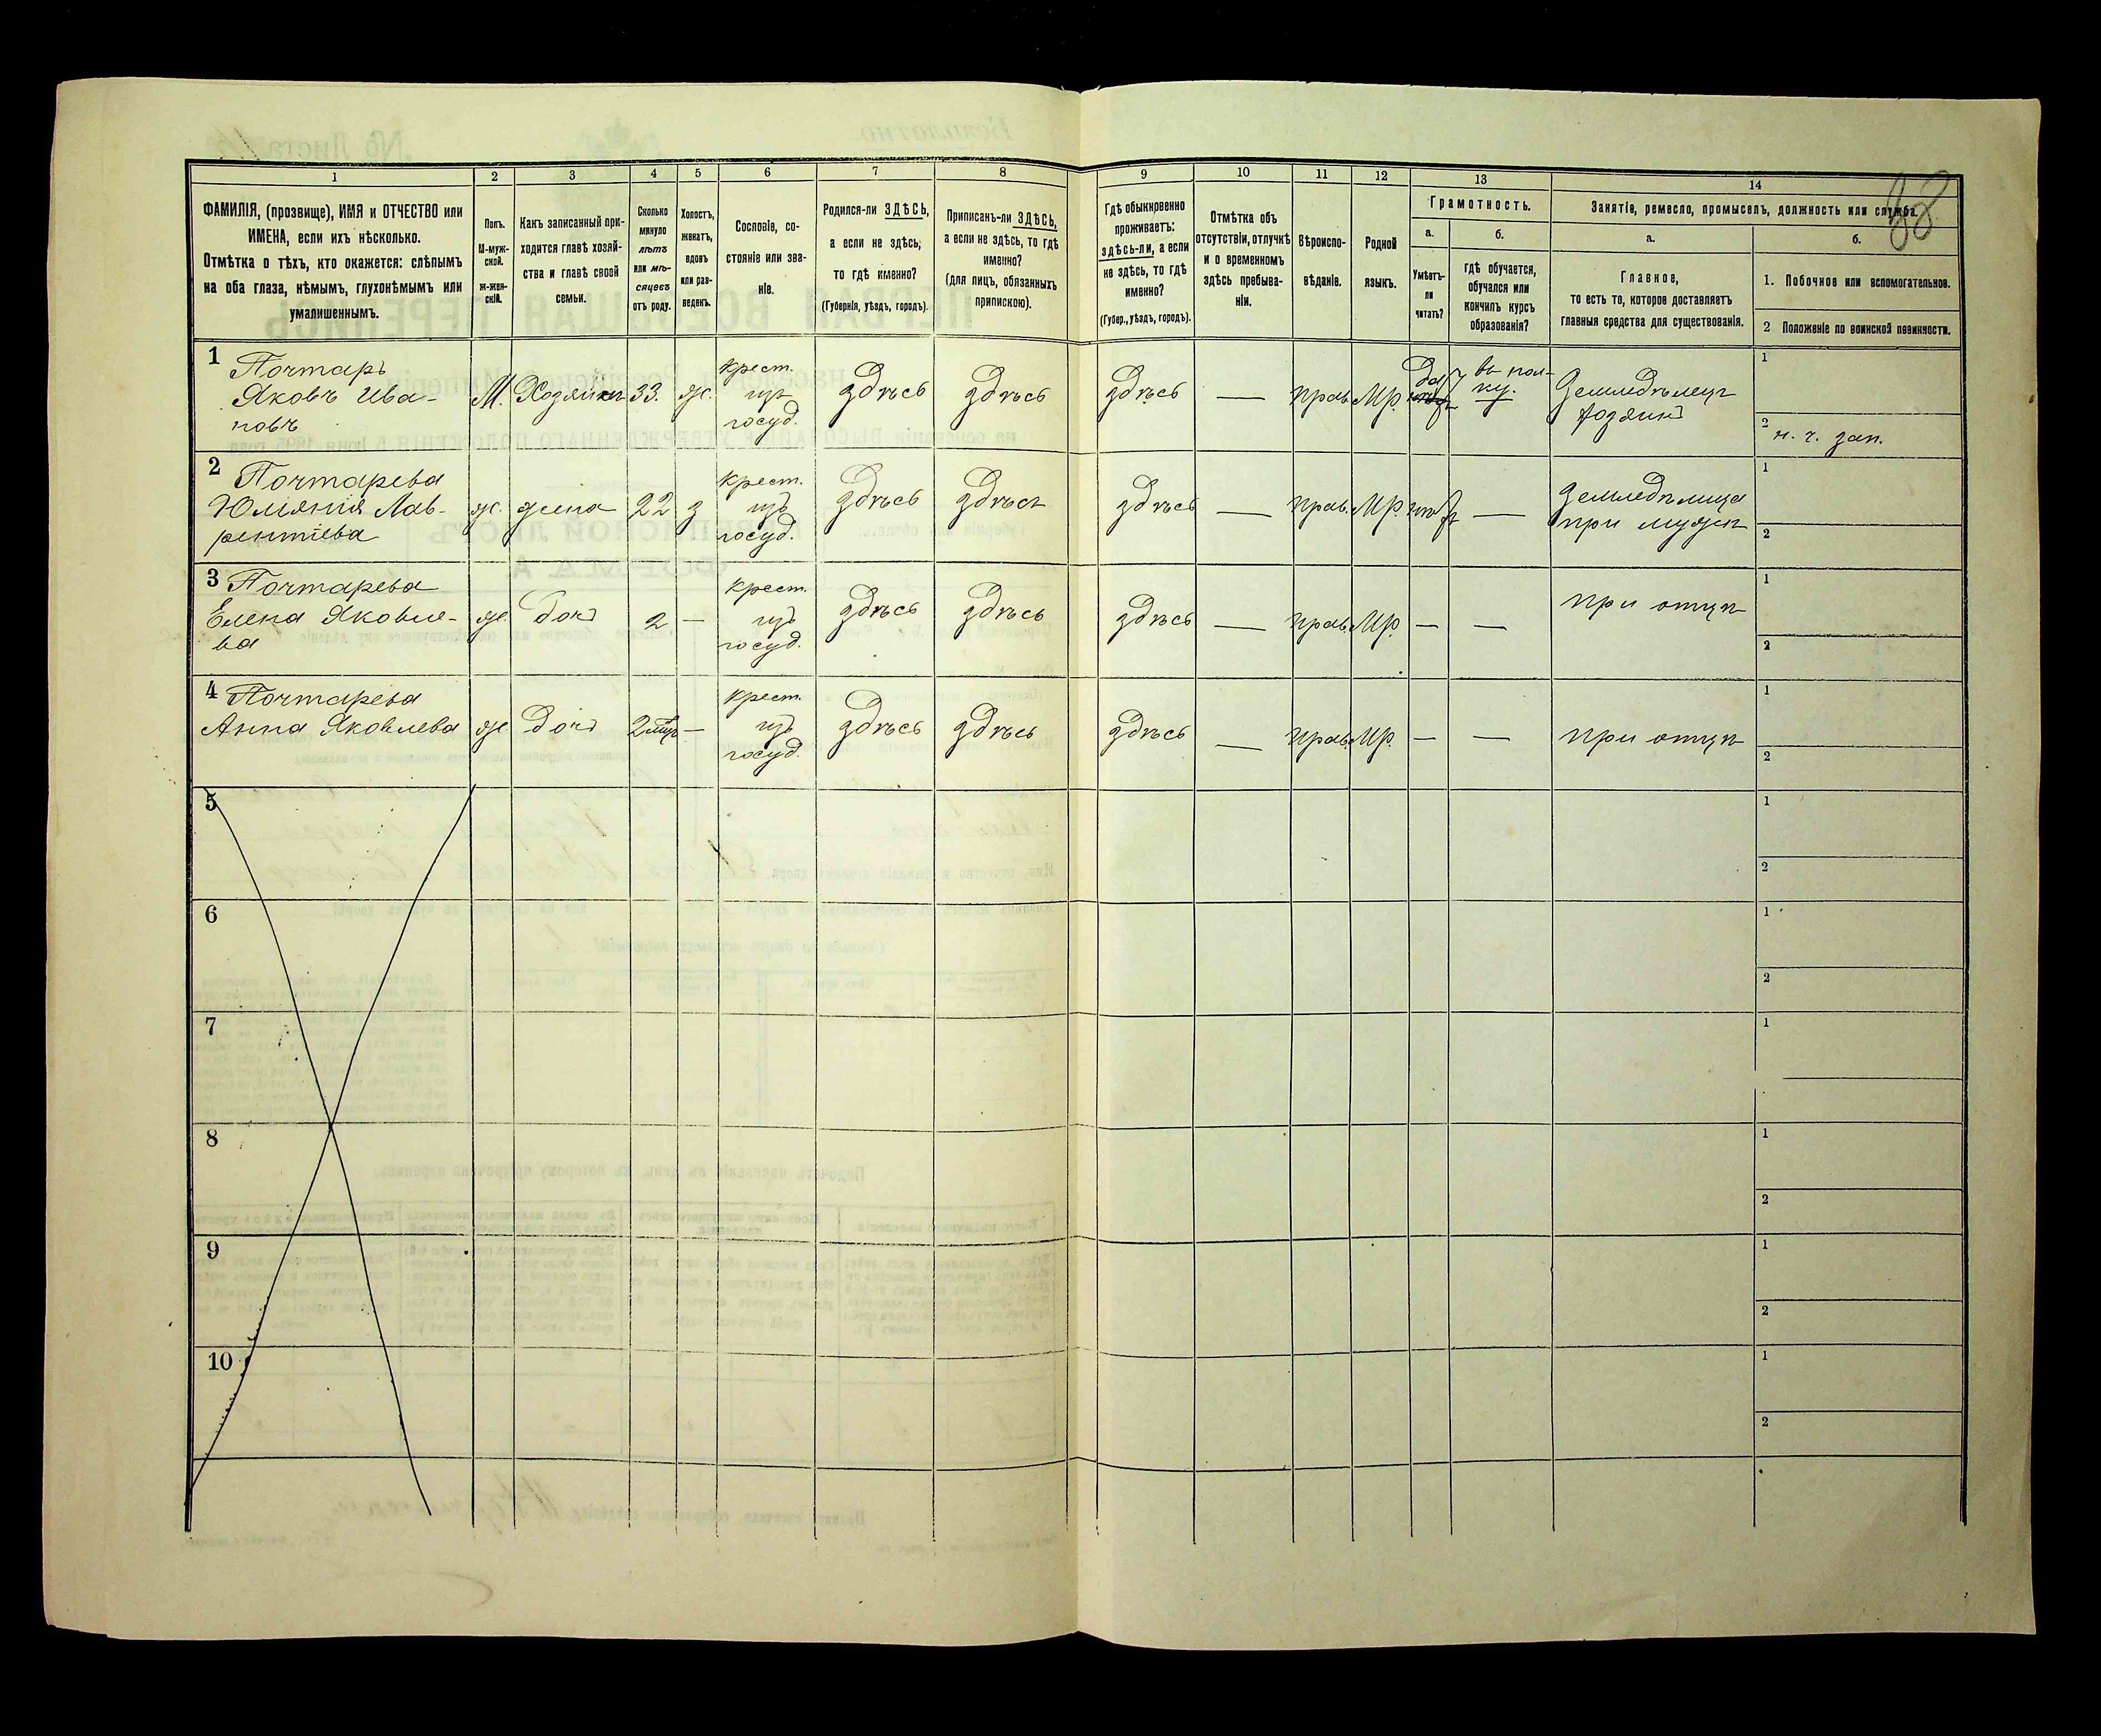 88
1 2 3 4 5 6 7 8 9 10 11 12 13 14
ФАМИЛІЯ, (прозвище), ИМЯ и ОТЧЕСТВО или
ИМЕНА, если ихъ нѣсколько.
Отмѣтка о тѣхъ, кто окажется: слѣпымъ
на оба глаза, нѣмымъ, глухонѣмымъ или
умалишеннымъ.
Полъ.
М-муж-
ской.
ж-жен-
скій.
Какъ записанный при-
ходится главѣ хозяй-
ства и главѣ своей
семьи.
Сколько
минуло
лѣтъ
или мѣ-
сяцевъ
отъ роду.
Холостъ,
женатъ,
вдовъ
или раз-
веденъ.
Сословіе, со-
стояніе или зва-
ніе.
Родился-ли ЗДѢСЬ,
а если не здѣсь,
то гдѣ именно?
(Губернія, уѣздъ, городъ).
Приписанъ-ли ЗДѢСЬ,
а если не здѣсь, то гдѣ
именно?
(для лицъ, обязанныхъ
припискою).
Гдѣ обыкновенно
проживаетъ:
здѣсь-ли, а если
не здѣсь, то гдѣ
именно?
(Губер., уѣздъ, городъ).
Отмѣтка объ
отсутствіи, отлучкѣ
и о временномъ
здѣсь пребыва-
ніи.
Вѣроиспо-
вѣданіе.
Родной
языкъ.
Грамотность.
а.
Умѣетъ-
ли
читать?
б.
гдѣ обучается,
обучался или
кончилъ курсъ
образованія?
Занятіе, ремесло, промыселъ, должность или служба.
а.
Главное,
то есть то, которое доставляетъ
главныя средства для существованія.
б.
1. Побочное или вспомогательное.
2 Положеніе по воинской повинности.
1
Почтаръ
Яковъ Ива-
новъ
М.
Хозяинъ
33.
ж.
крест.
изъ
госуд.
здѣсь
здѣсь
здѣсь
—
прав.
Мр.
Да
въ пол-
ку.
Земледѣлец
хозяин
1
2 н. ч. зап.
2
Почтарева
Юліянія Лав-
рентіева
ж.
жена
22
з
крест.
изъ
госуд.
здѣсь
здѣсь
здѣсь
—
прав.
Мр.
нѣт
—
земледѣлица
при мужѣ
1
2
3
Почтарева
Елена Яковле-
ва
ж.
доч
2
—
крест.
изъ
госуд.
здѣсь
здѣсь
здѣсь
—
прав.
Мр.
—
—
при отцѣ
1
2
4
Почтарева
Анна Яковлева
ж
доч
2 мѣц
—
крест.
изъ
госуд.
здѣсь
здѣсь
здѣсь
—
прав.
Мр.
—
—
при отцѣ
1
2
5
1
2
6
1
2
7
1
8
1
2
9
1
2
10
1
2